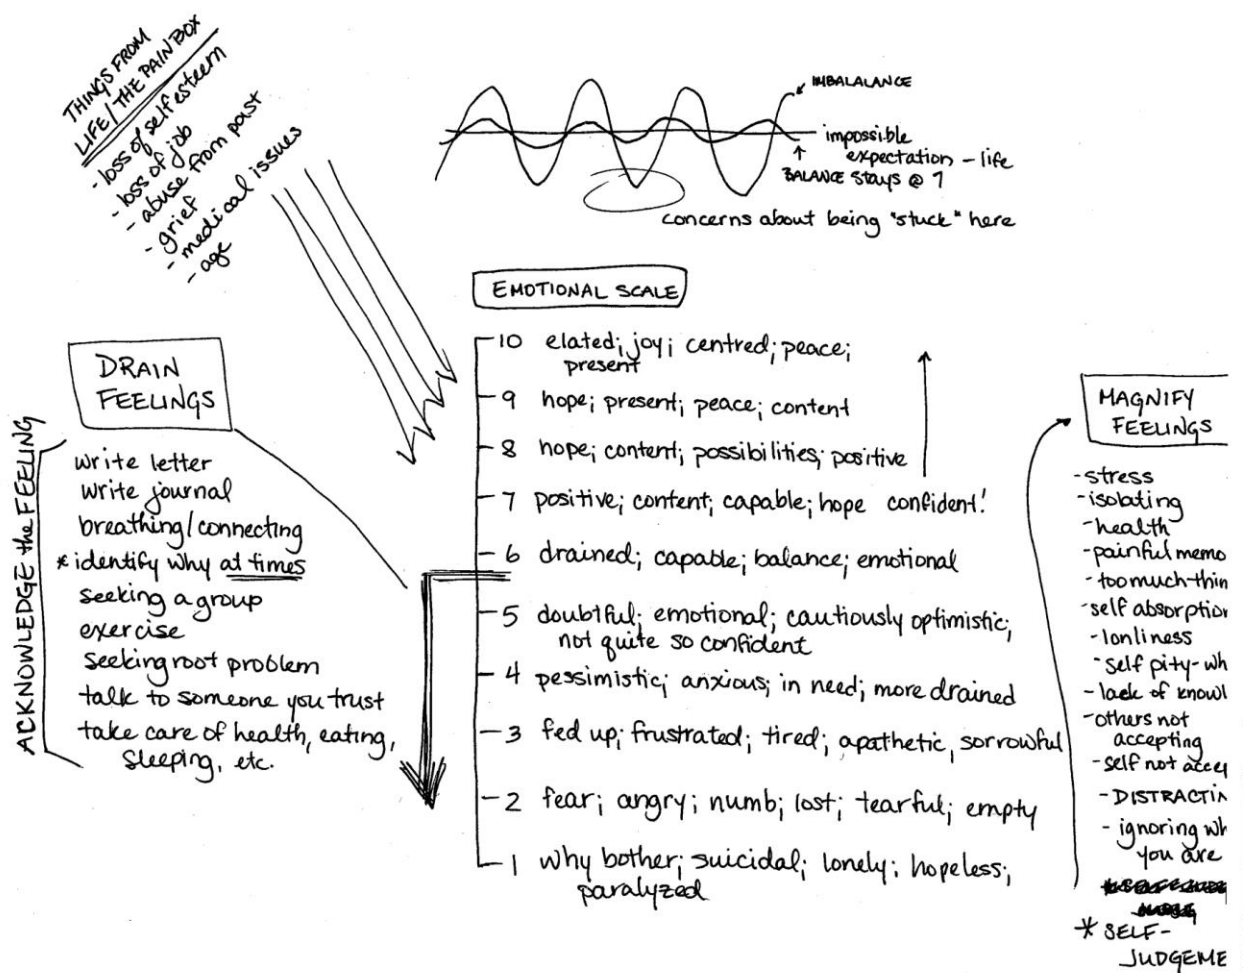 THINGS FROM
LIFE/ THE PAIN BOX
- loss of self esteem
- loss of job
- abuse from past
- grief
- medical issues
- age
IMBALALANCE
impossible
expectation - life
BALANCE Stays @ 7
concerns about being "stuck" here
EMOTIONAL SCALE
10 elated; joy; centred; peace;
present
9 hope; present; peace; content
8 hope; content; possibilities; positive
7 positive; content; capable; hope confident!
6 drained; capable; balance; emotional
5 doubtful; emotional; cautiously optimistic;
not quite so confident
4 pessimistic; anxious; in need; more drained
3 fed up; frustrated; tired; apathetic, sorrowful
2 fear; angry; numb; lost; tearful; empty
1 why bother; suicidal; lonely; hopeless;
paralyzed
DRAIN
FEELINGS
ACKNOWLEDGE the FEELING
write letter
write journal
breathing/connecting
* identify why at times
seeking a group
exercise
seeking root problem
talk to someone you trust
take care of health, eating,
sleeping, etc.
MAGNIFY
FEELINGS
- stress
- isolating
- health
- painful memo
- too much thin
- self absorption
- lonliness
- self pity - wh
- lack of knowl
- others not
accepting
- self not accep
- DISTRACTIN
- ignoring wh
you are
* SELF-
JUDGEME